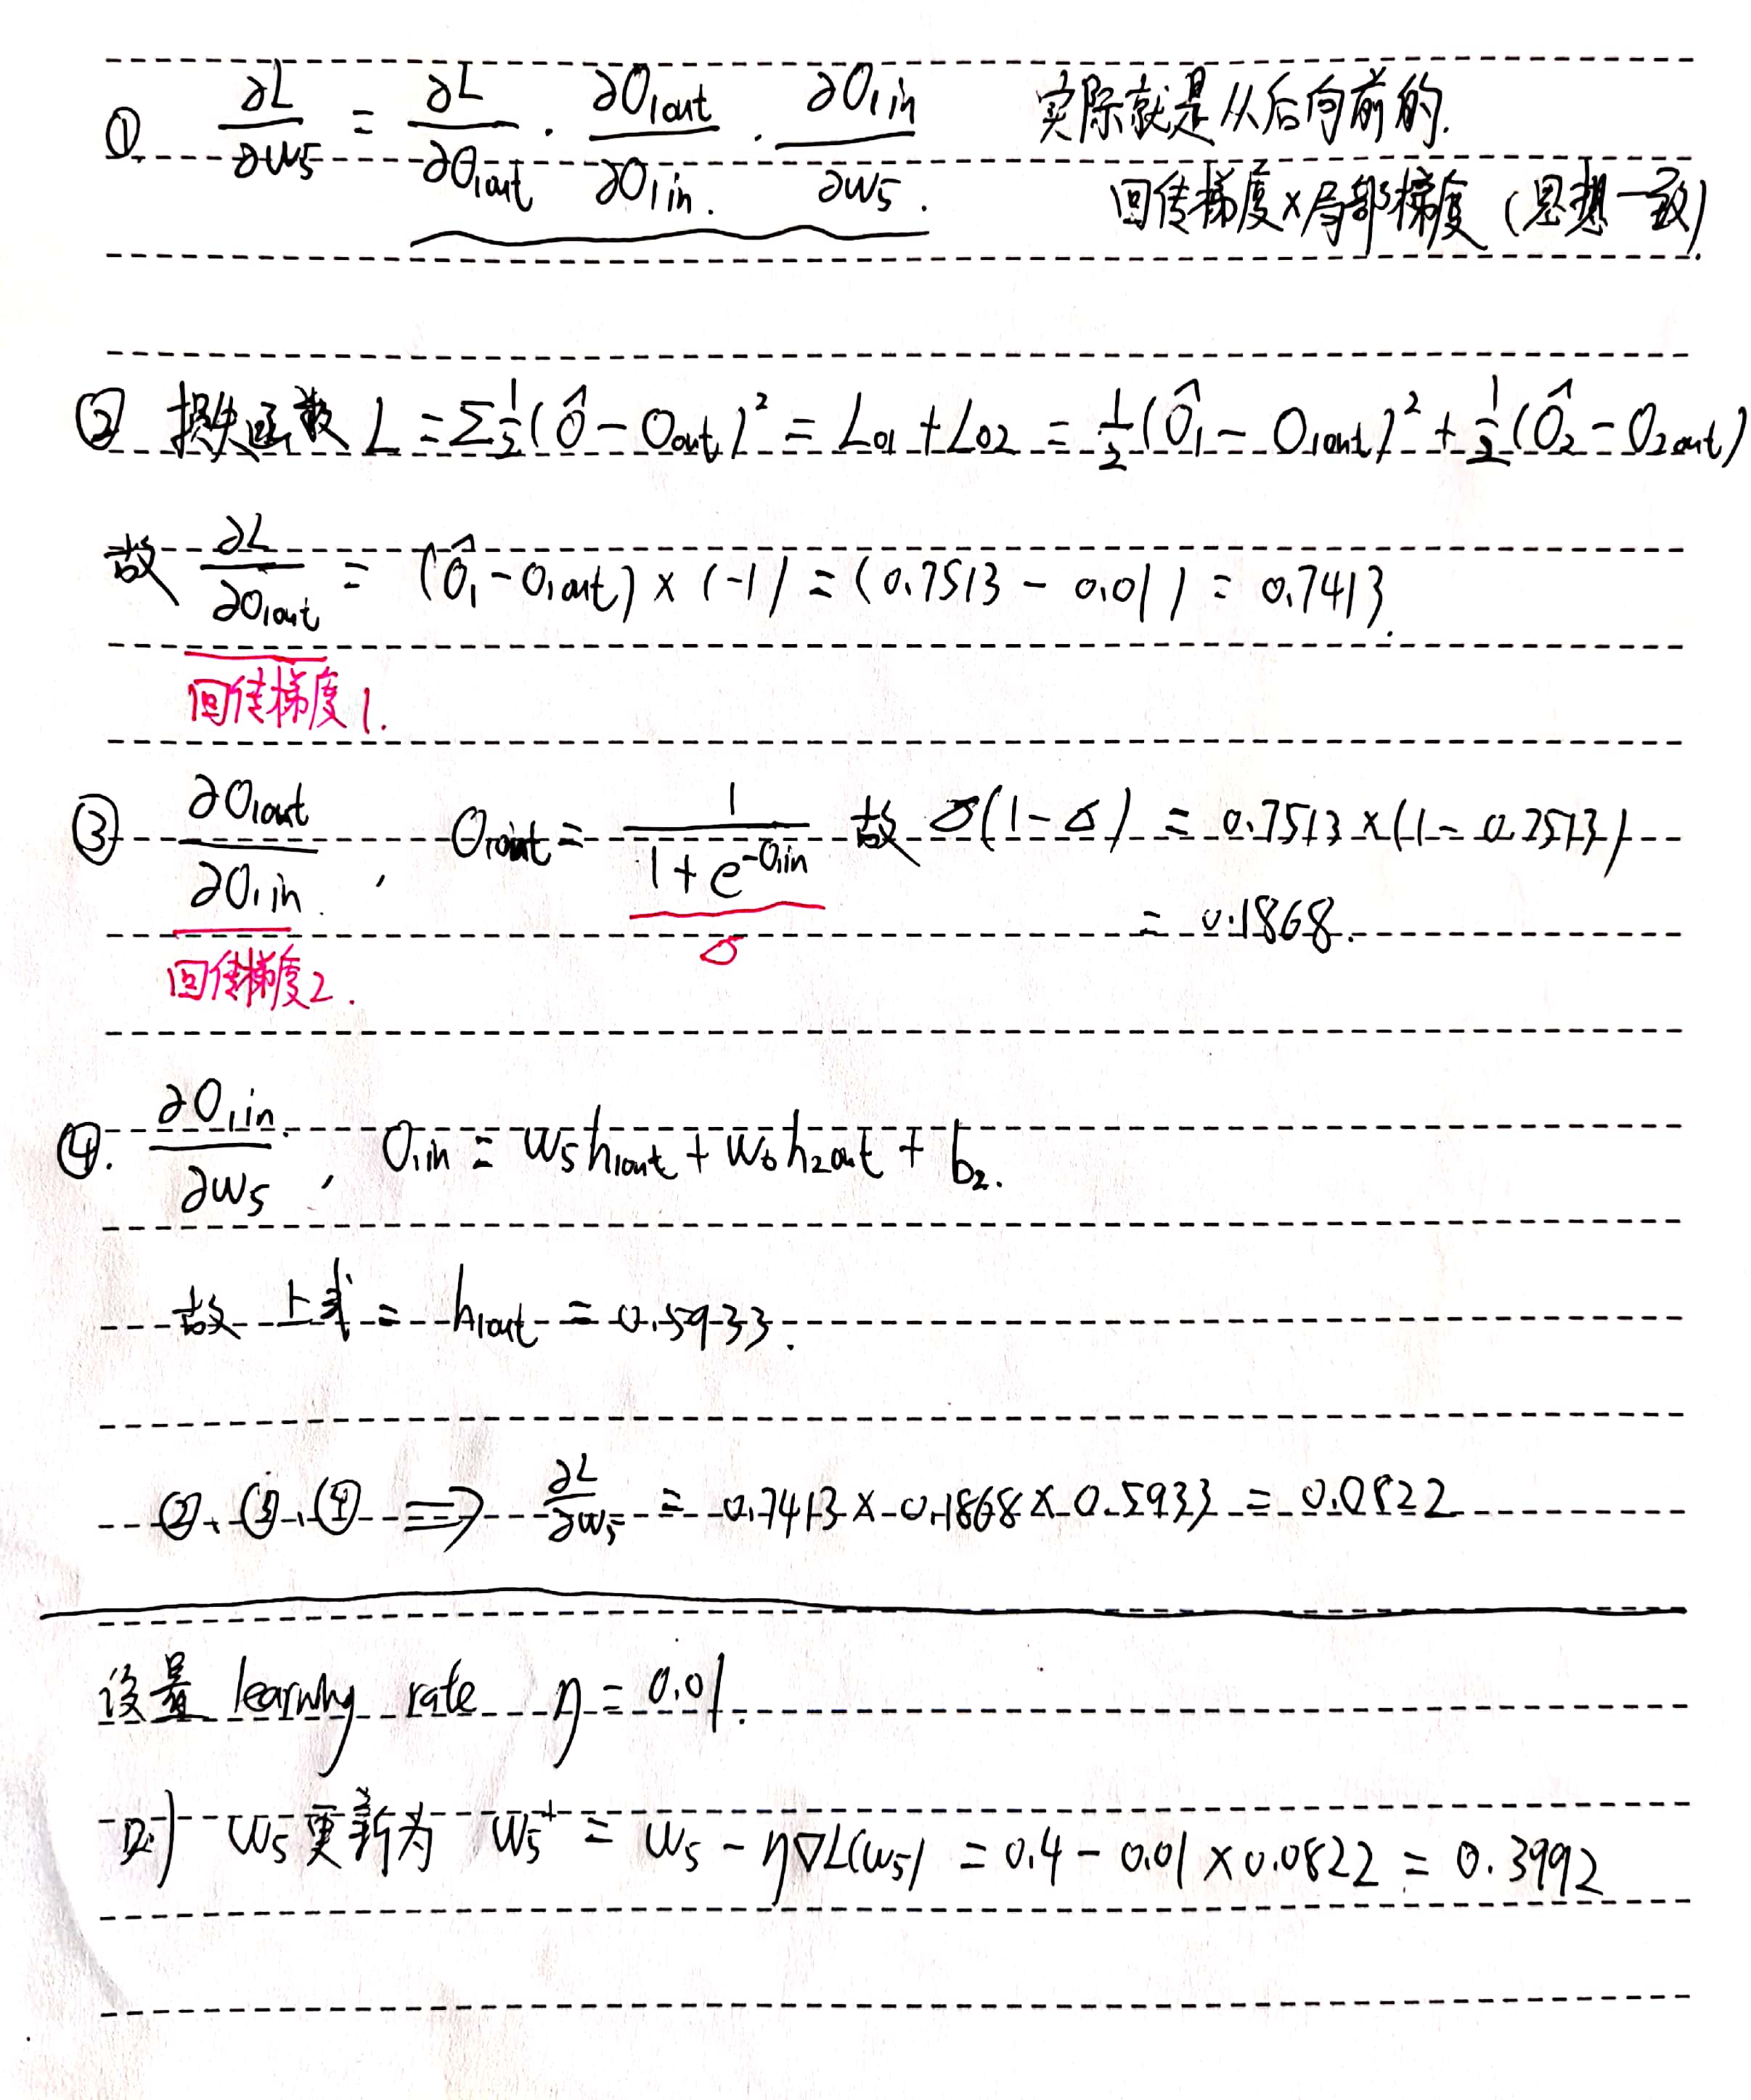 ① ∂L/∂w5 = ∂L/∂O1out · ∂O1out/∂O1in · ∂O1in/∂w5 . 实际就是从后向前的.
回传梯度×局部梯度 (思想一致).
② 损失函数 L = Σ½(Ô - Oout)² = Lo1 + Lo2 = ½(Ô1 - O1out)² + ½(Ô2 - O2out)
故 ∂L/∂O1out = (Ô1 - O1out) × (-1) = (0.7513 - 0.01) = 0.7413.
回传梯度1.
③ ∂O1out/∂O1in , O1out = 1/(1 + e^-O1in) 故 σ(1-σ) = 0.7513×(1-0.7513)
σ = 0.1868.
回传梯度2.
④. ∂O1in/∂w5 , O1in = w5h1out + w6h2out + b2.
故 上式 = h1out = 0.5933.
②、③、④ ⟹ ∂L/∂w5 = 0.7413 × 0.1868 × 0.5933 = 0.0822
设置 learning rate η = 0.01.
则 w5更新为 w5⁺ = w5 - η∇L(w5) = 0.4 - 0.01 × 0.0822 = 0.3992